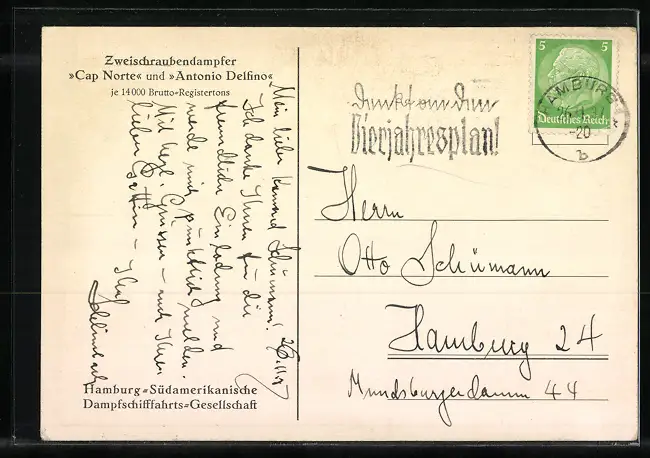 Zweischraubendampfer
»Cap Norte« und »Antonio Delfino«
je 14000 Brutto-Registertons
Mein lieber Kamerad Schümann!
Ich danke Ihnen für die
freundliche Einladung und
werde mich pünktlich melden.
Mit herzl. Grüssen – auch Ihrer
lieben Gattin – Ihr
Hamburg-Südamerikanische
Dampfschifffahrts-Gesellschaft
Denkt an den
Vierjahresplan!
5 5
Deutsches Reich
HAMBURG
-20
b
Herrn
Otto Schümann
Hamburg 24
Mundsburgerdamm 44